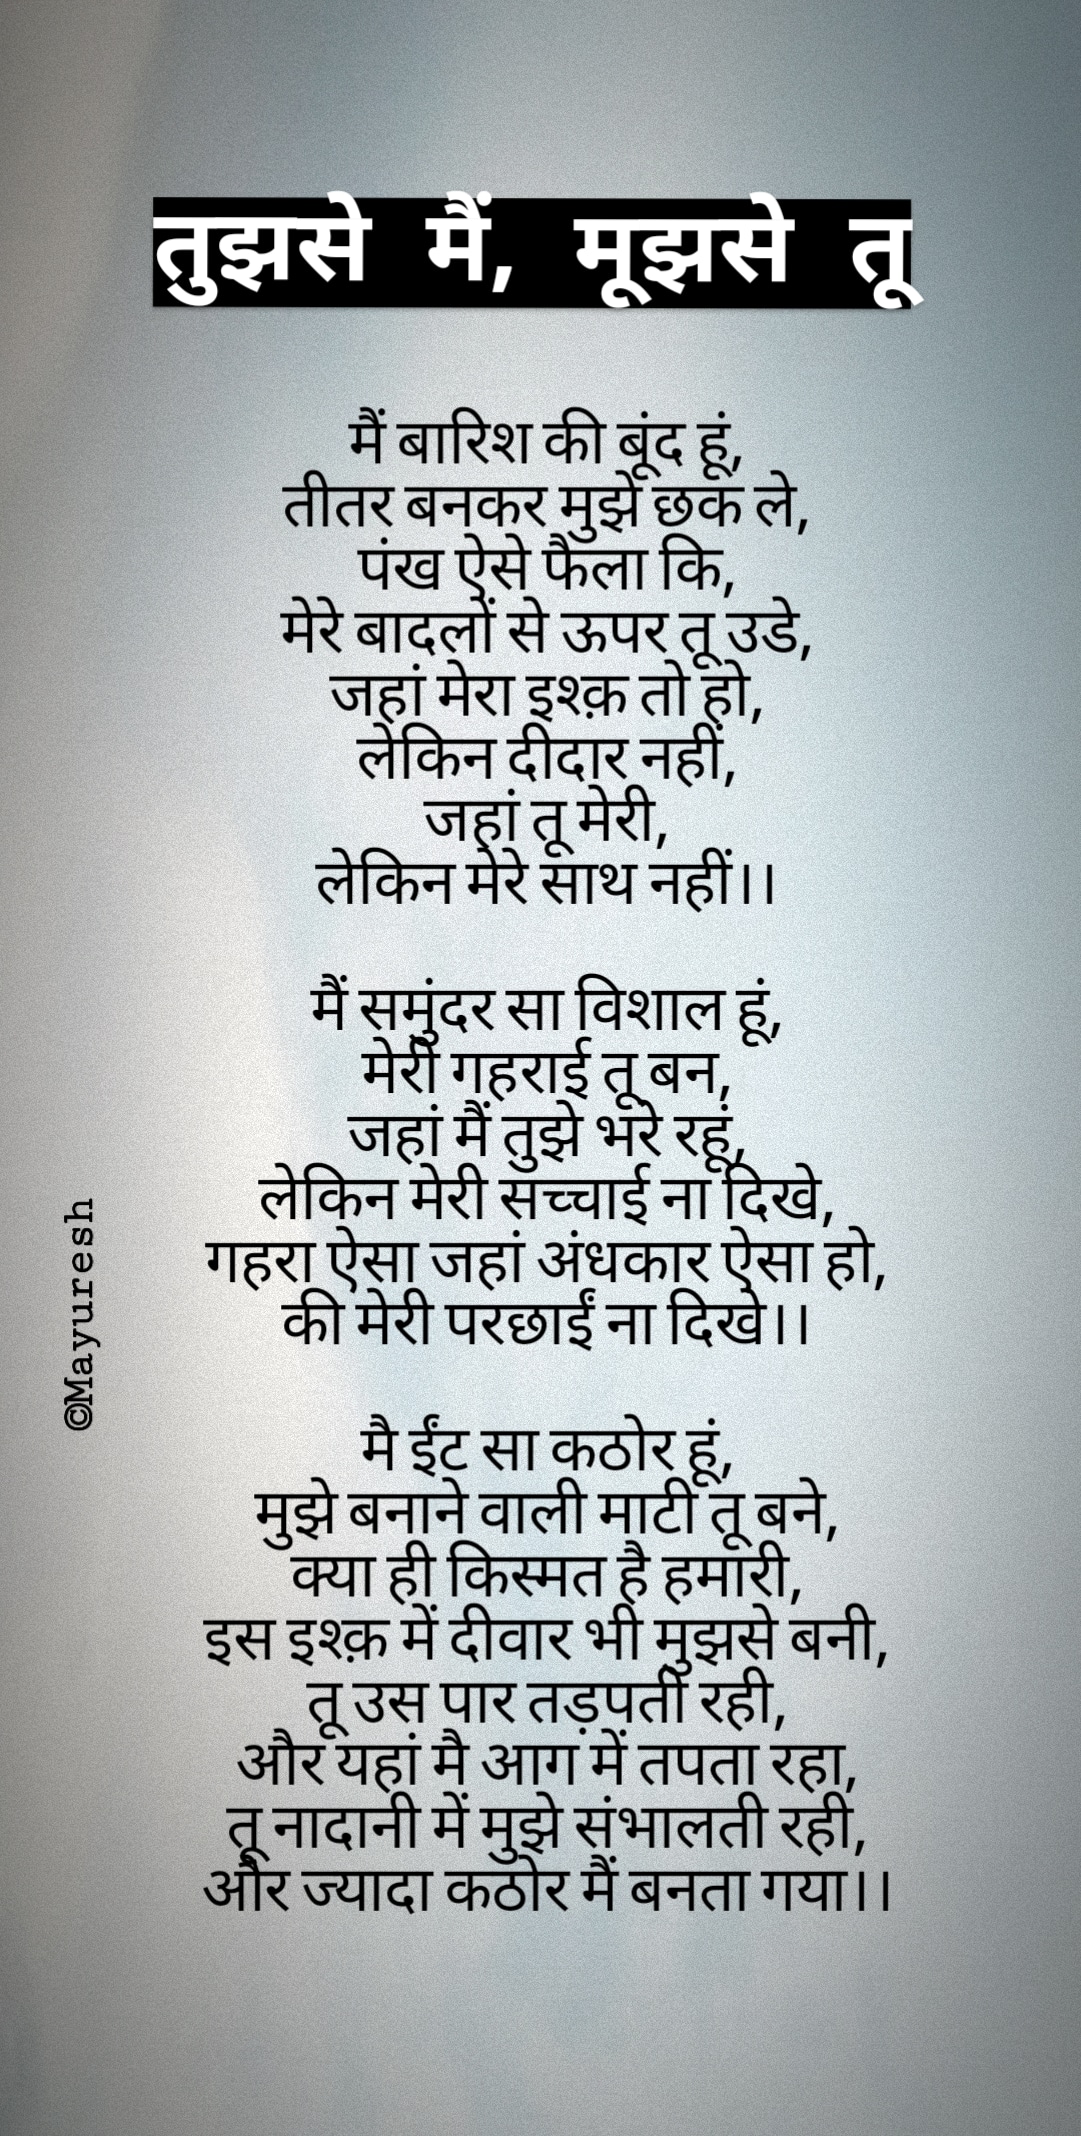 तुझसे मैं, मूझसे तू
मैं बारिश की बूंद हूं,
तीतर बनकर मुझे छक ले,
पंख ऐसे फैला कि,
मेरे बादलों से ऊपर तू उडे,
जहां मेरा इश्क़ तो हो,
लेकिन दीदार नहीं,
जहां तू मेरी,
लेकिन मेरे साथ नहीं।।
मैं समुंदर सा विशाल हूं,
मेरी गहराई तू बन,
जहां मैं तुझे भरे रहूं,
लेकिन मेरी सच्चाई ना दिखे,
गहरा ऐसा जहां अंधकार ऐसा हो,
की मेरी परछाईं ना दिखे।।
मै ईंट सा कठोर हूं,
मुझे बनाने वाली माटी तू बने,
क्या ही किस्मत है हमारी,
इस इश्क़ में दीवार भी मुझसे बनी,
तू उस पार तड़पती रही,
और यहां मै आग में तपता रहा,
तू नादानी में मुझे संभालती रही,
और ज्यादा कठोर मैं बनता गया।।
©Mayuresh